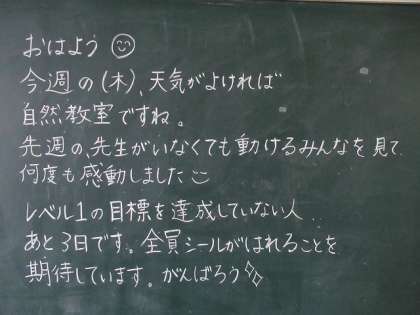 おはよう
今週の(木)、天気がよければ
自然教室ですね。
先週の、先生がいなくても動けるみんなを見て
何度も感動しました
レベル1の目標を達成していない人..
あと3日です。全員シールがはれることを
期待しています。がんばろう